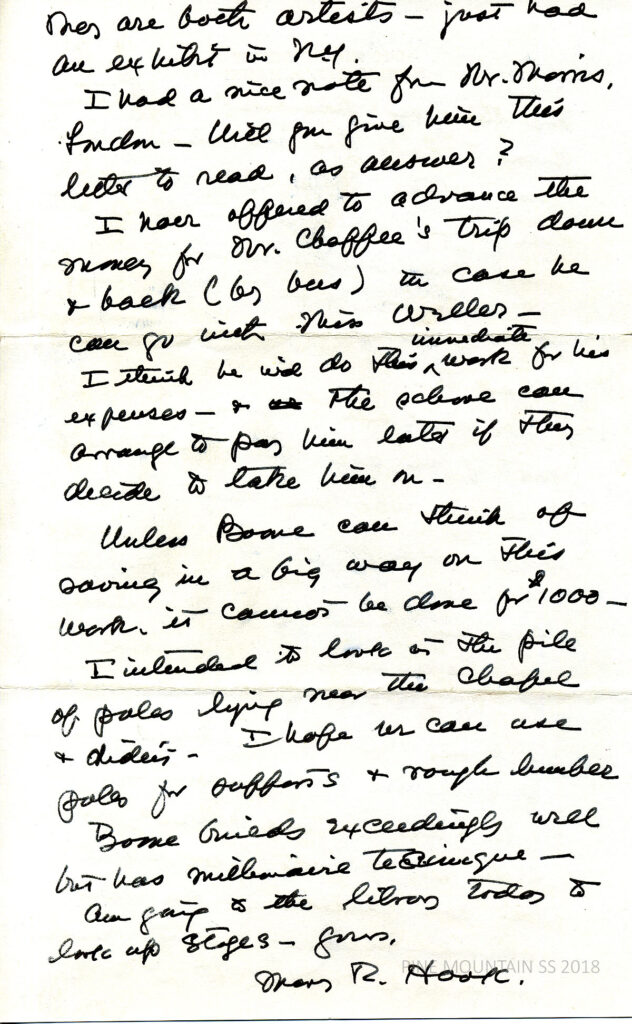 They are both artists – just had
an exhibit in N.Y.
I had a nice note from Mr. Morris,
London – Will you give him this
letter to read, as answer?
I have offered to advance the
money for Mr. Chaffee's trip down
& back (by bus) in case he
can go with Miss Weller –
immediate
I think he will do this ^ work for his
expenses – & the school can
arrange to pay him later if they
decide to take him on –
Unless Boone can think of
saving in a big way on this
work, it cannot be done for $1000 –
I intended to look at the pile
of poles lying near the chapel
& didn't – I hope we can use
poles for supports & rough lumber
Boone builds exceedingly well
but has millionaire technique –
Am going to the library today to
look up stages – yours,
Mary R. Hook.
PINE MOUNTAIN SS 2018